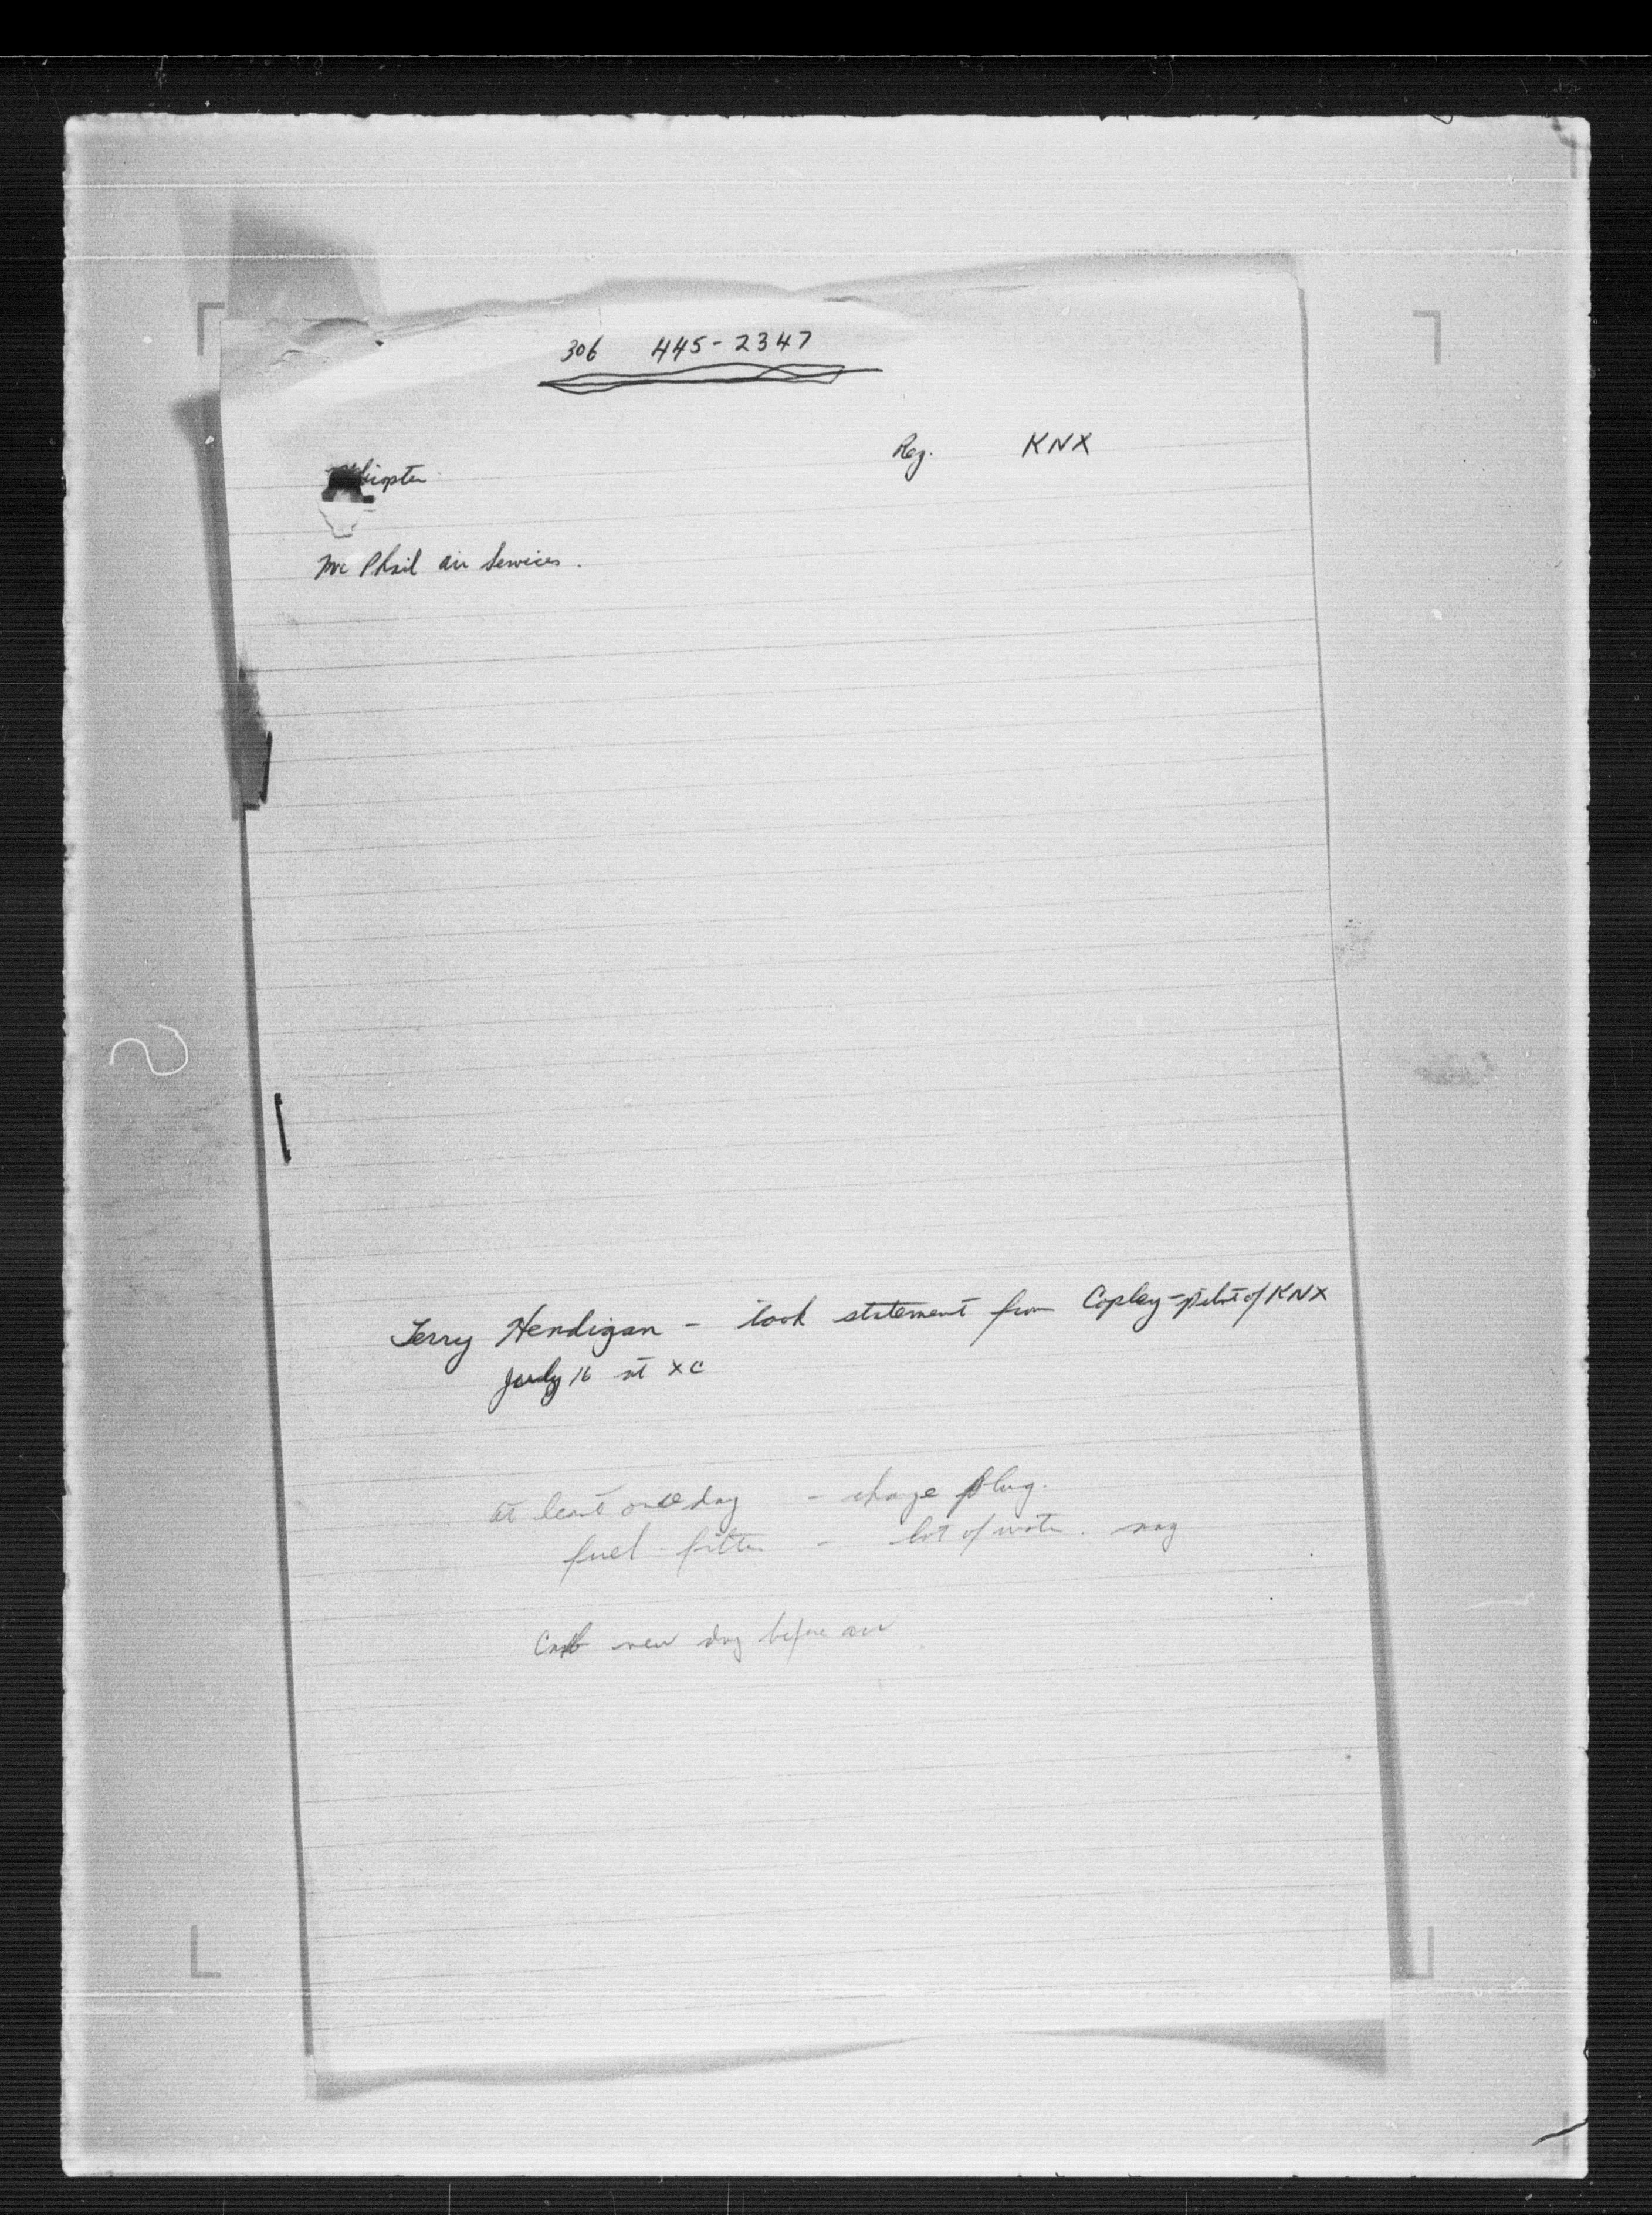 306 445-2347
Reg. KNX
Mc Phail Air Services.
Terry Hendigan - took statement from Copley - pilot of KNX
July 16 at XC
at least once day - change plug.
fuel - filter - lot of water.
new day before acc